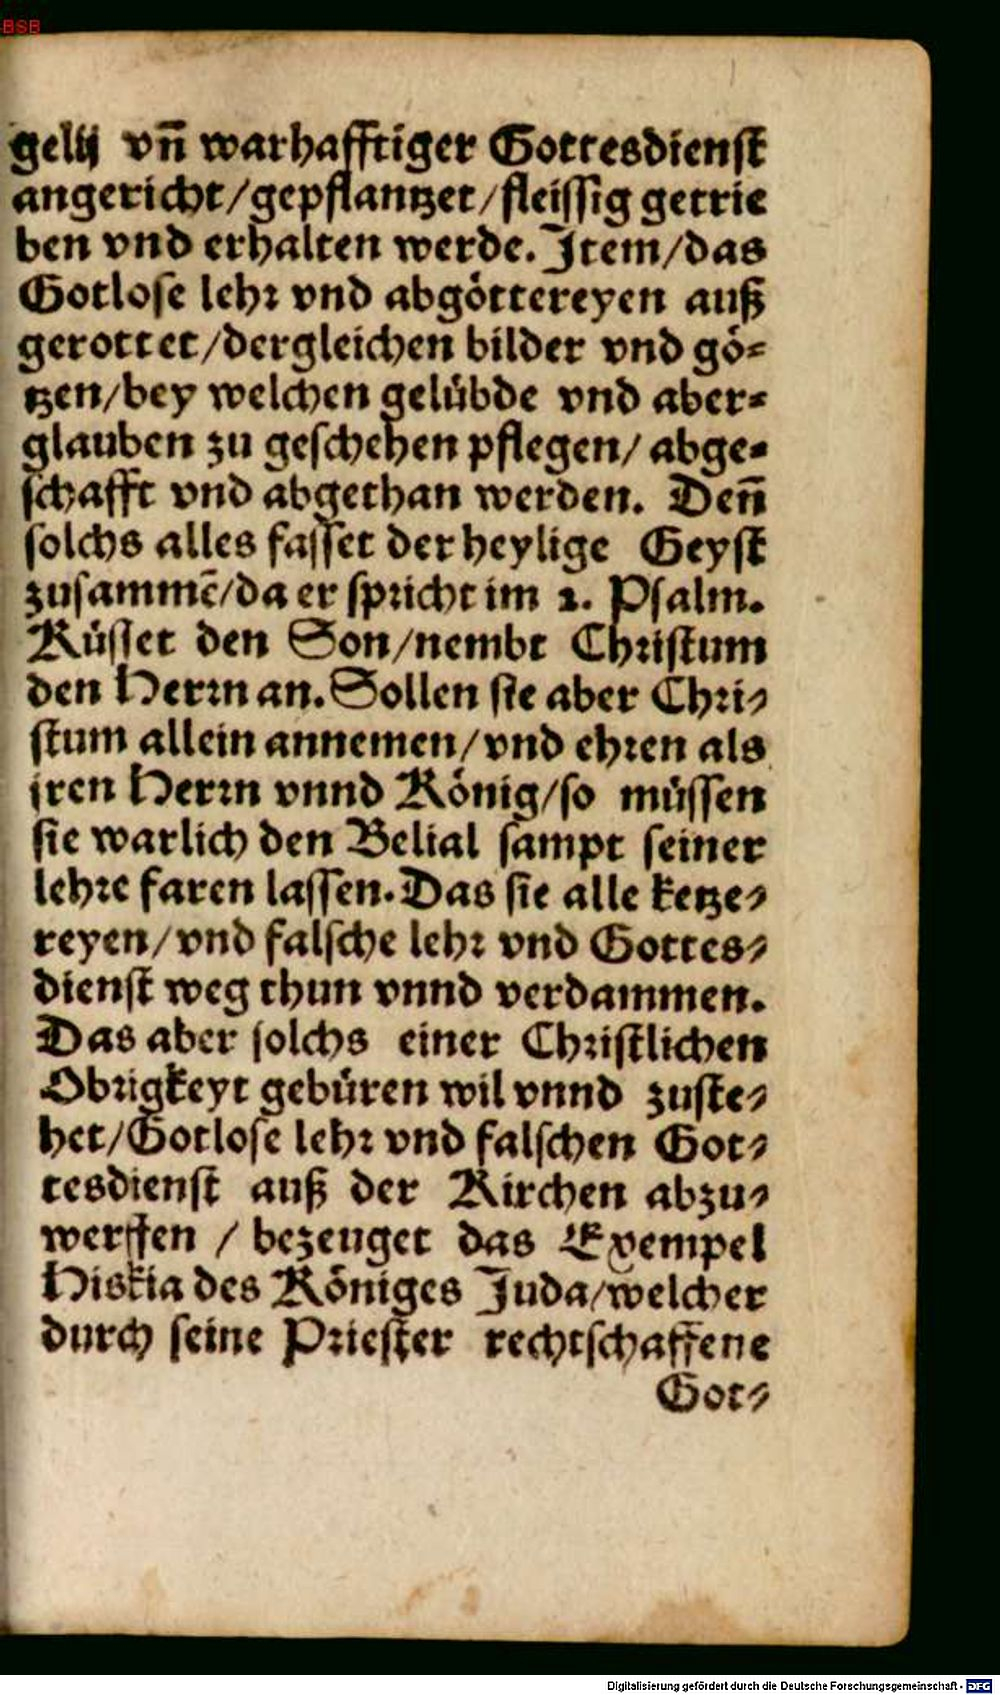 BSB
gelij vñ warhafftiger Gottesdienst
angericht/gepflantzet/fleissig getrie
ben vnd erhalten werde. Item/das
Gotlose lehr vnd abgöttereyen auß
gerottet/dergleichen bilder vnd gö-
tzen/bey welchen gelübde vnd aber-
glauben zu geschehen pflegen/ abge-
schafft vnd abgethan werden. Den̄
solchs alles fasset der heylige Geyst
zusammē/da er spricht im 2. Psalm.
Küsset den Son/nembt Christum
den Herrn an. Sollen sie aber Chri-
stum allein annemen/vnd ehren als
jren Herrn vnnd König/so müssen
sie warlich den Belial sampt seiner
lehre faren lassen. Das sie alle ketze-
reyen/vnd falsche lehr vnd Gottes-
dienst weg thun vnnd verdammen.
Das aber solchs einer Christlichen
Obrigkeyt gebüren wil vnnd zuste-
het/Gotlose lehr vnd falschen Got-
tesdienst auß der Kirchen abzu-
werffen / bezeuget das Exempel
Hiskia des Königes Juda/welcher
durch seine Priester rechtschaffene
Got-
Digitalisierung gefördert durch die Deutsche Forschungsgemeinschaft - DFG